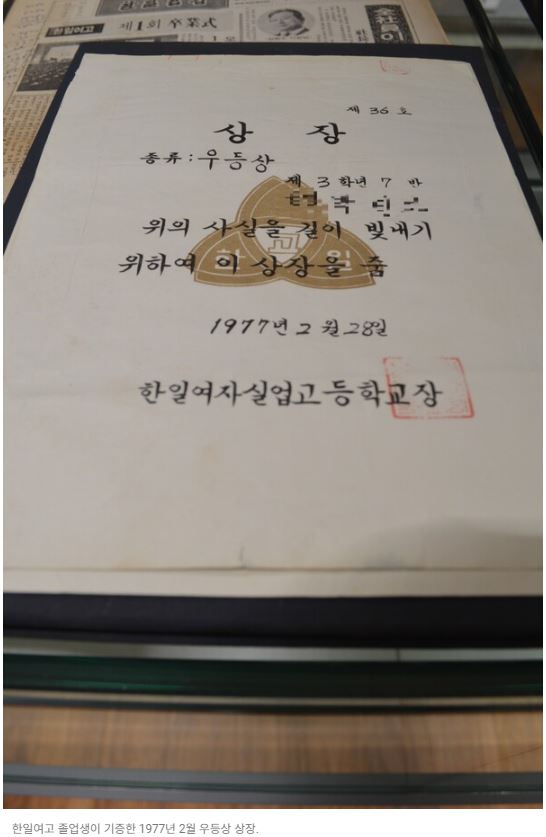 한일여고
제1회 卒業式
제 36 호
상 장
종류 : 우등상
제 3 학년 7 반
위의 사실을 길이 빛내기
위하여 이 상장을 줌
한 교 일
1977년 2 월 28일
한일여자실업고등학교장
한일여고 졸업생이 기증한 1977년 2월 우등상 상장.